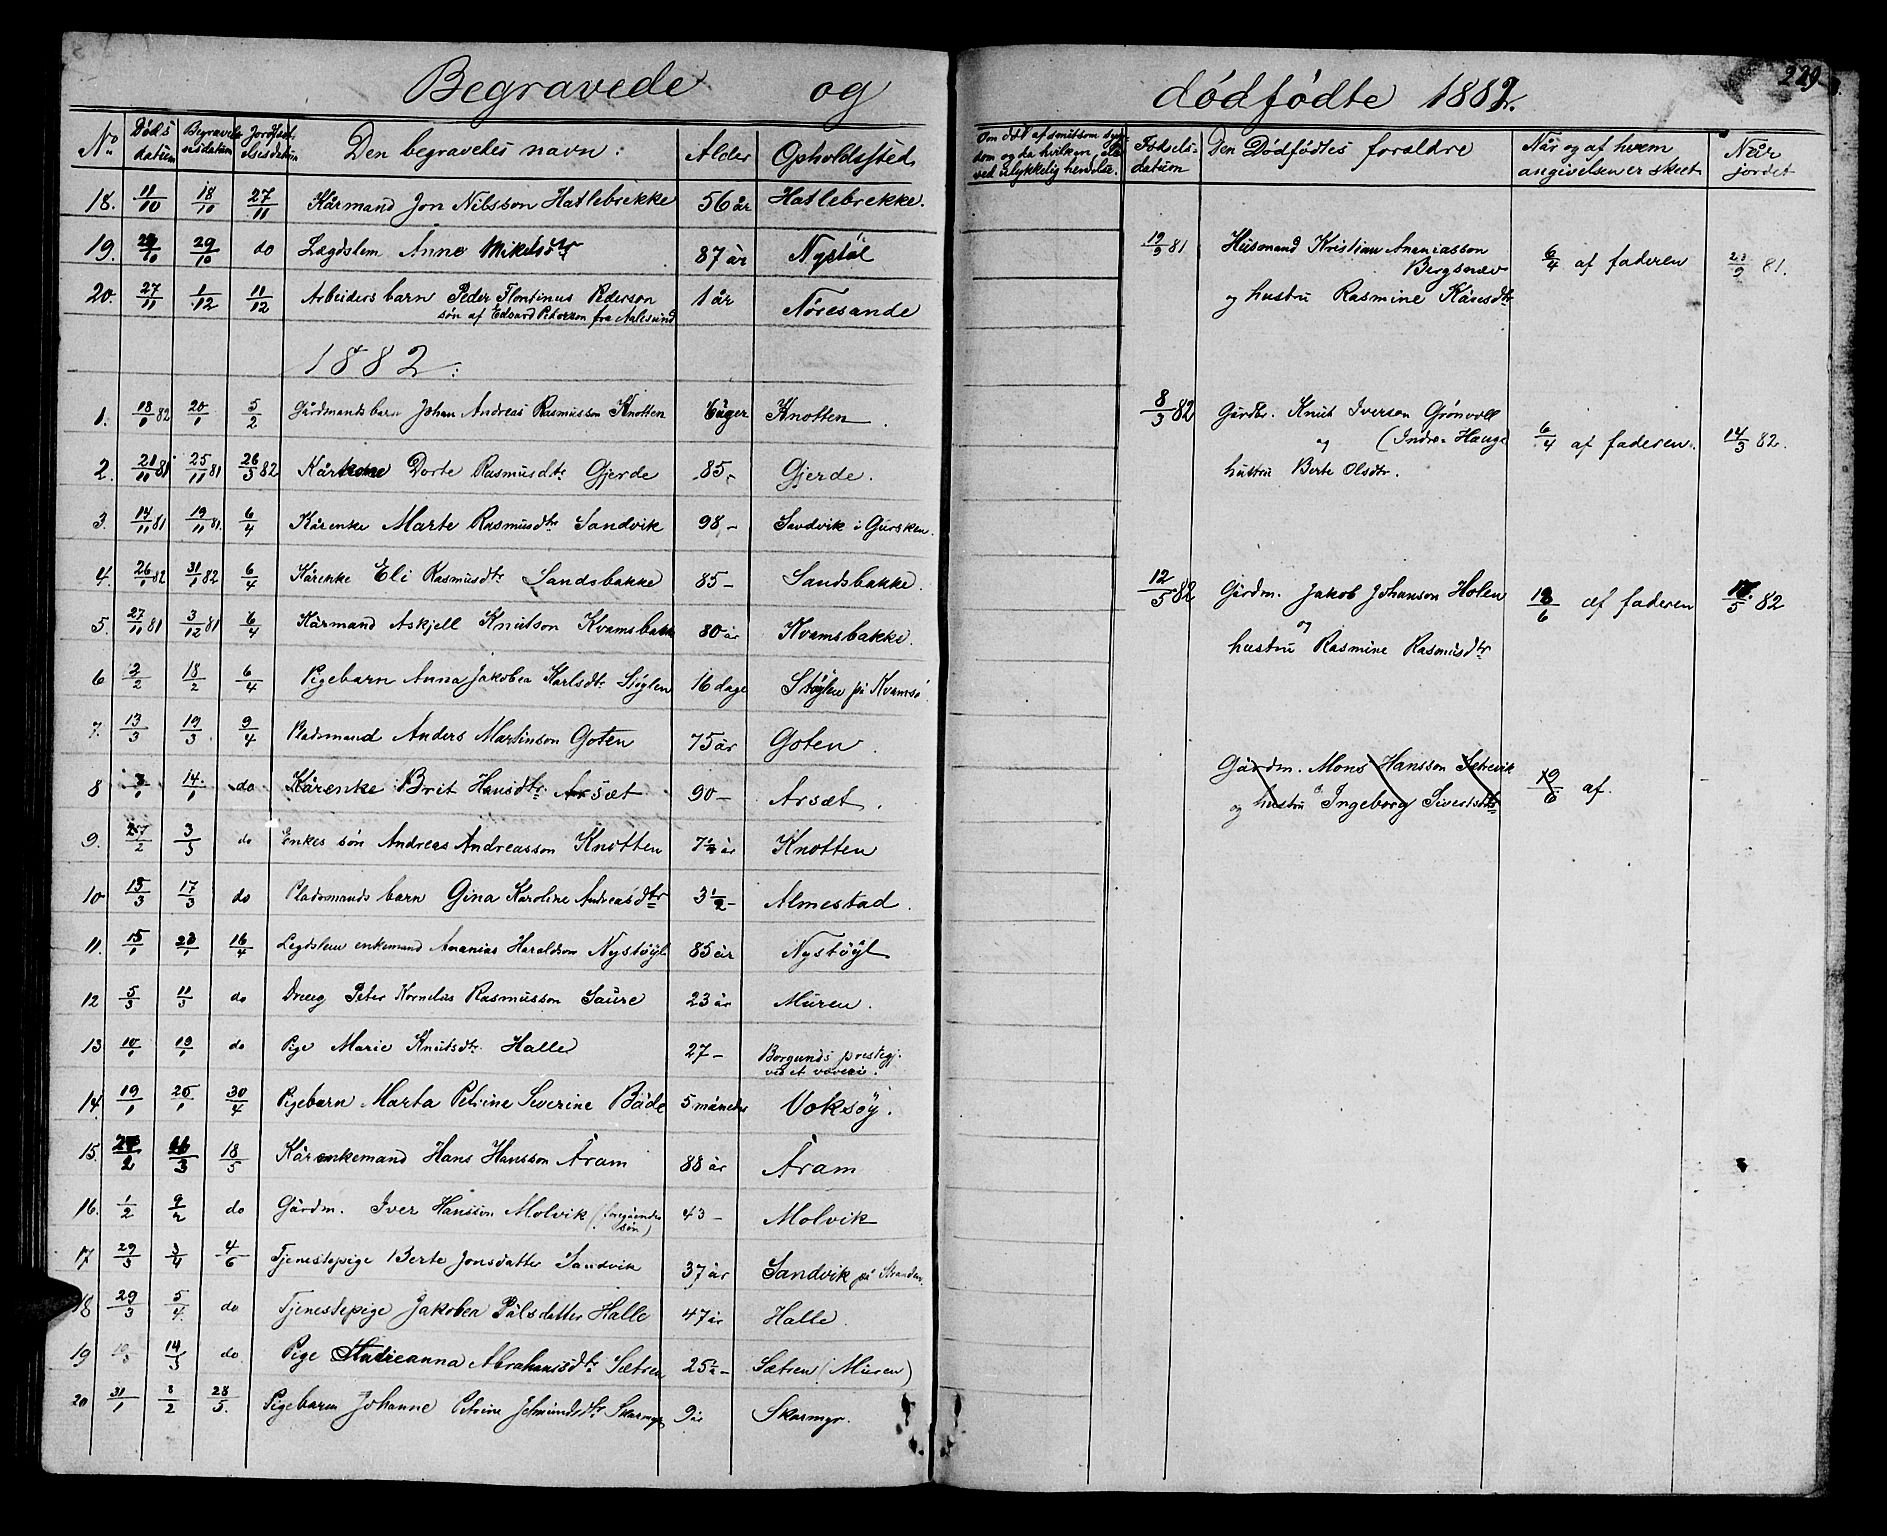 Begravede og dödfödte 1882.
229
No. Döds datum Begravelsesdatum Jordfæstelsesdatum Den begravedes navn: Alder Opholdssted
18. 11/10 18/10 27/11 Kårmand Jon Nilsson Hatlebrekke 56 år Hatlebrekke.
19. 29/10 do Lægdslem Anne Mikelsdtr 87 år Nystöl
20. 27/11 1/12 11/12 Arbeiders barn Peder Flontinus Pederson 1 år Nöresande
sön af Edvard Pederson fra Aalesund
1882:
1. 18/1 82 20/1 5/2 Gårdmandsbarn Johan Andreas Rasmusson Knotten Knotten.
2. 21/11 81 25/11 81 26/3 82 Kårkone Dorte Rasmusdtr Gjerde 85- Gjerde.
3. 14/11 81 19/11 81 6/4 Kårenke Marte Rasmusdtr Sandvik 98- Sandvik i Gursken.
4. 26/1 82 31/1 82 6/4 Kårenke Eli Rasmusdtr Sandsbakke 85- Sandsbakke.
5. 27/11 81 3/12 81 6/4 Kårmand Askjell Knutson Kvamsbakk 80 år Kvamsbakke.
6 2/2 18/2 6/4 Pigebarn Anna Jakobea Karlsdtr Stöylen 16 dage Stöylen på Kvamsö
7. 13/3 19/3 9/4 Pladsmand Anders Martinson Goten 75 år Goten.
8 14/1 do Kårenke Brit Hansdtr Årsæt 90- Årsæt.
9. 27/2 3/3 do Enkes sön Andreas Andreasson Knotten 7½ år Knotten
10 13/3 17/3 do Pladsmands barn Gina Karoline Andreasdtr 3½- Almestad.
11. 15/1 16/4 Legdslem enkemand Ananias Haraldson Nystöyl 85 år Nystöyl
12 5/3 11/3 do Dreng Peter Kornelus Rasmusson Saure 23 år Muren.
13 10/1 19/1 do Pige Marie Knutsdtr Halle 27- Borgunds prestegj.
ved et væveri.
14 19/1 25/1 30/4 Pigebarn Marta Petrine Severine Både 5 måneder Voksöy.
15. 18/5 Kårenkemand Hans Hansson Åram 88 år Åram
16. 1/2 9/2 do Gårdm. Iver Hansson Molvik (foregåendes sön) 43- Molvik
17 29/3 3/4 4/6 Tjenestepige Berte Jonsdatter Sandvik 37 år Sandvik på Stranden
18 29/3 5/4 do Tjenestepige Jakobea Pålsdatter Halle 47 år Halle.
19 14/3 do Pige Andreanna Abrahamsdtr Sætren 25½- Sætren (Muren)
20 31/1 8/2 28/5. Pigebarn Johanne Petrine Jetmundsdtr Skarmyr 9 år Skarmyr.
Om död af smitsom sygdom og da hvilken eller ved ulykkelig hendelse. Födselsdatum Den Dödfödtes foreldre Når og af hvem angivelsen er skeet Når jordet
19/3 81 Husmand Kristian Ananiasson Bergsnev
og hustru Rasmine Kåresdtr 6/4 af faderen 81.
8/3 82 Gårdbr. Knut Iverson Grönvoll
og (Indre-Hauge)
hustru Berte Olsdtr. 6/4 af faderen. 14/3 82.
12/5 82 Gårdm. Jakob Johanson Holen
og
hustru Rasmine Rasmusdtr 6 af faderen 5 82
Gårdm. Mons Hansson Sætrevik
og hustru Ingeborg Sivertsdtr 19/6 af.